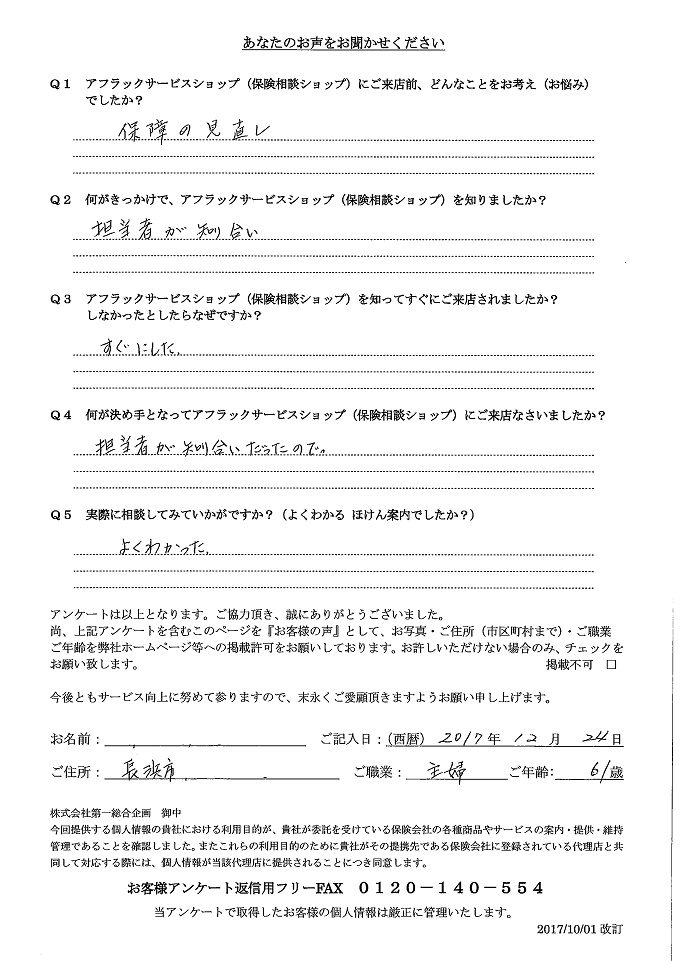 あなたのお声をお聞かせください
Q1 アフラックサービスショップ（保険相談ショップ）にご来店前、どんなことをお考え（お悩み）
でしたか？
保障の見直し
Q2 何がきっかけで、アフラックサービスショップ（保険相談ショップ）を知りましたか？
担当者が知り合い
Q3 アフラックサービスショップ（保険相談ショップ）を知ってすぐにご来店されましたか？
しなかったとしたらなぜですか？
すぐにした。
Q4 何が決め手となってアフラックサービスショップ（保険相談ショップ）にご来店なさいましたか？
担当者が知り合いだったので。
Q5 実際に相談してみていかがですか？（よくわかる ほけん案内でしたか？）
よくわかった。
アンケートは以上となります。ご協力頂き、誠にありがとうございました。
尚、上記アンケートを含むこのページを『お客様の声』として、お写真・ご住所（市区町村まで）・ご職業
ご年齢を弊社ホームページ等への掲載許可をお願いしております。お許しいただけない場合のみ、チェックを
お願い致します。 掲載不可 □
今後ともサービス向上に努めて参りますので、末永くご愛顧頂きますようお願い申し上げます。
お名前： ご記入日：（西暦） 2017年 12月 24日
ご住所： 長浜市 ご職業： 主婦 ご年齢： 61歳
株式会社第一総合企画 御中
今回提供する個人情報の貴社における利用目的が、貴社が委託を受けている保険会社の各種商品やサービスの案内・提供・維持
管理であることを確認しました。またこれらの利用目的のために貴社がその提携先である保険会社に登録されている代理店と共
同して対応する際には、個人情報が当該代理店に提供されることにつき同意します。
お客様アンケート返信用フリーFAX 0120－140－554
当アンケートで取得したお客様の個人情報は厳正に管理いたします。
2017/10/01 改訂